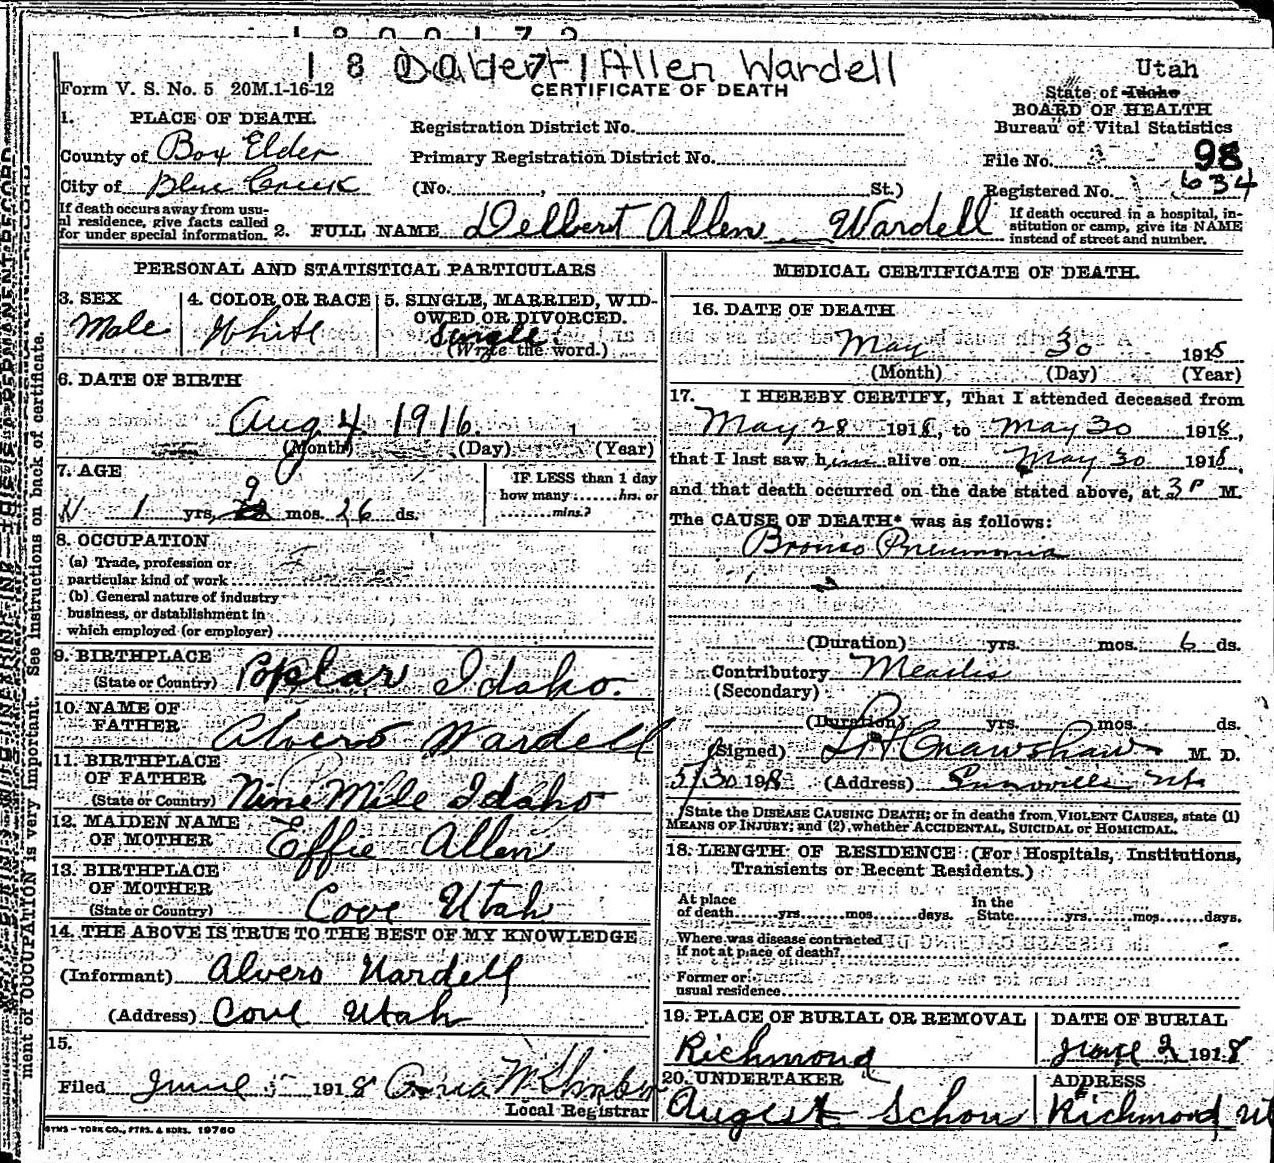 Delbert Allen Wardell
Utah
Form V. S. No. 5 20M.1-16-12
CERTIFICATE OF DEATH
State of Idaho
BOARD OF HEALTH
Bureau of Vital Statistics
1. PLACE OF DEATH.
Registration District No.
County of Box Elder
Primary Registration District No.
File No. 98
City of Blue Creek
(No. , St.)
Registered No. 634
If death occurs away from usu-
al residence, give facts called
for under special information.
2. FULL NAME Delbert Allen Wardell
If death occured in a hospital, in-
stitution or camp, give its NAME
instead of street and number.
PERSONAL AND STATISTICAL PARTICULARS
3. SEX
Male
4. COLOR OR RACE
White
5. SINGLE, MARRIED, WID-
OWED OR DIVORCED.
Single
(Write the word.)
6. DATE OF BIRTH
Aug 4 1916
(Month) (Day) (Year)
7. AGE
1 yrs. 9 mos. 26 ds.
IF LESS than 1 day
how many hrs. or
mins.?
8. OCCUPATION
(a) Trade, profession or
particular kind of work
(b) General nature of industry
business, or dstablishment in
which employed (or employer)
9. BIRTHPLACE
(State or Country) Poplar Idaho.
10. NAME OF
FATHER Alvero Wardell
11. BIRTHPLACE
OF FATHER
(State or Country) Nine Mile Idaho
12. MAIDEN NAME
OF MOTHER Effie Allen
13. BIRTHPLACE
OF MOTHER
(State or Country) Cove Utah
14. THE ABOVE IS TRUE TO THE BEST OF MY KNOWLEDGE
(Informant) Alvero Wardell
(Address) Cove Utah
15.
Filed June 5 1918
Local Registrar
MEDICAL CERTIFICATE OF DEATH.
16. DATE OF DEATH
May 30 1918
(Month) (Day) (Year)
17. I HEREBY CERTIFY, That I attended deceased from
May 28 1918, to May 30 1918,
that I last saw him alive on May 30 1918,
and that death occurred on the date stated above, at 3P M.
The CAUSE OF DEATH* was as follows:
Bronco Pneumonia
(Duration) yrs. mos. 6 ds.
Contributory Measles
(Secondary)
(Duration) yrs. mos. ds.
(Signed) Crawshaw M. D.
5/30 1918 (Address)
State the DISEASE CAUSING DEATH; or in deaths from VIOLENT CAUSES, state (1)
MEANS OF INJURY; and (2) whether ACCIDENTAL, SUICIDAL or HOMICIDAL.
18. LENGTH OF RESIDENCE (For Hospitals, Institutions,
Transients or Recent Residents.)
At place
of death yrs. mos. days.
In the
State yrs. mos. days.
Where was disease contracted
if not at place of death?
Former or
usual residence
19. PLACE OF BURIAL OR REMOVAL
Richmond
DATE OF BURIAL
June 2 1918
20. UNDERTAKER
August Schow
ADDRESS
Richmond Ut
ment of OCCUPATION is very important. See instructions on back of certificate.
SYMS - YORK CO., PTRS. & BDRS. 19760